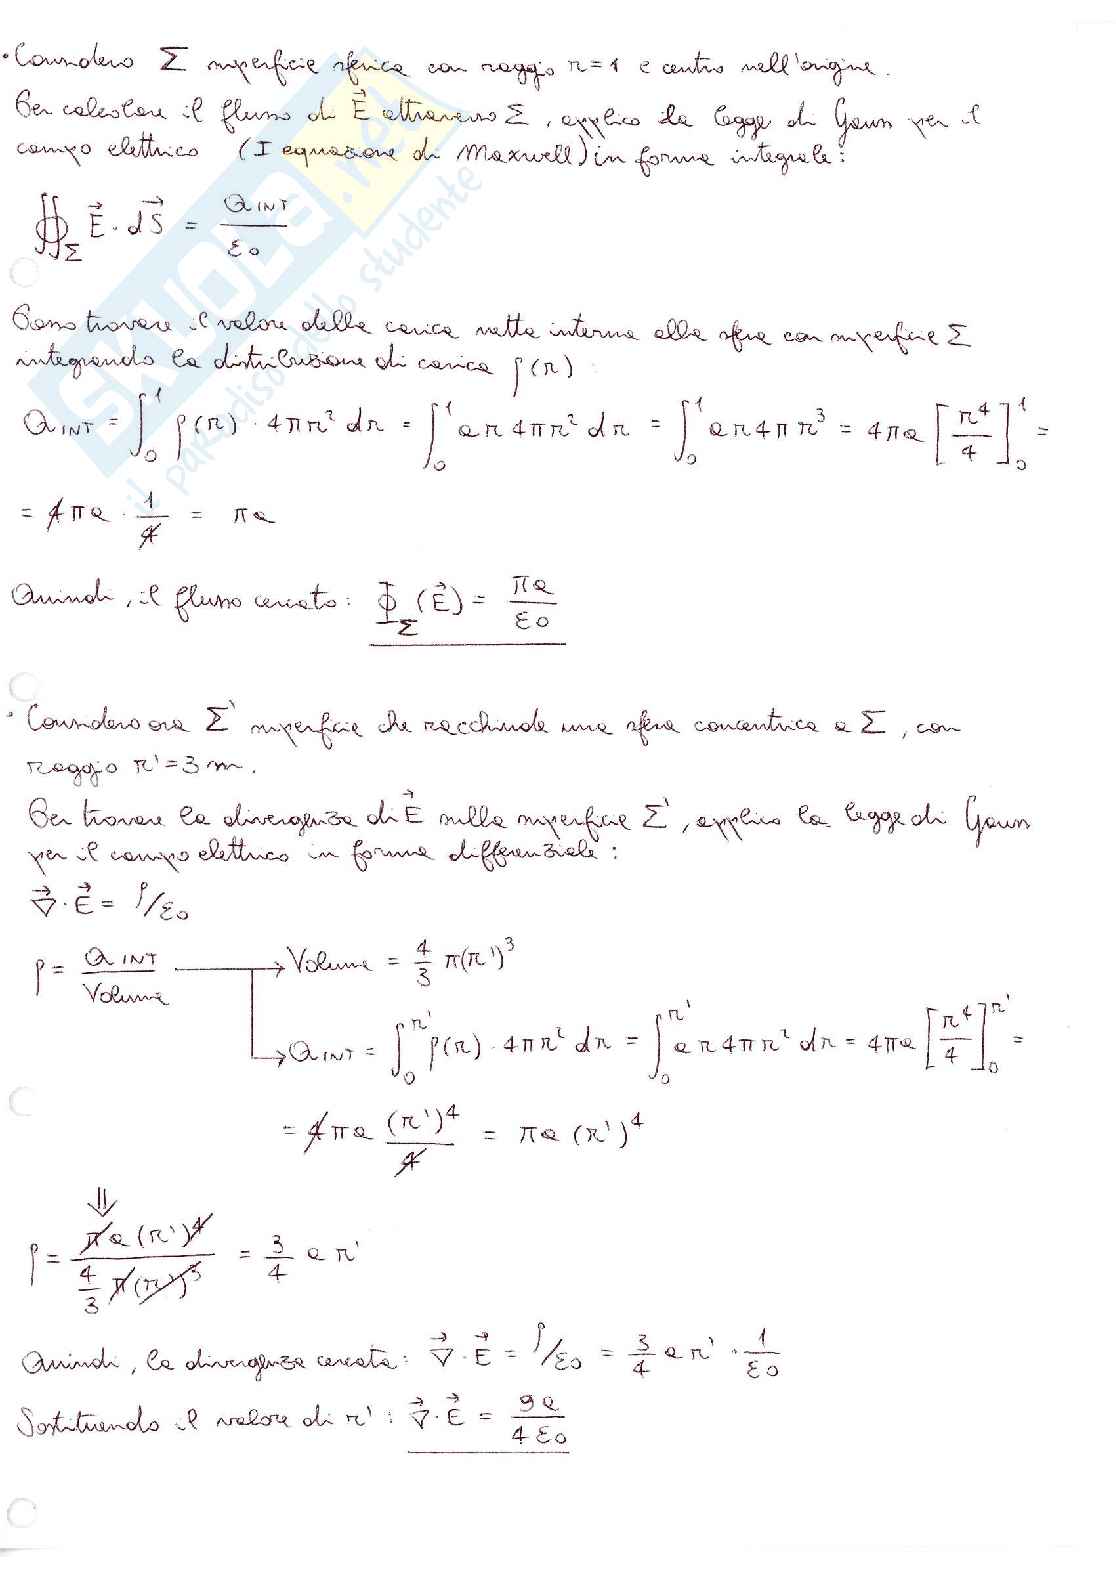 • Considero Σ superficie sferica con raggio r=1 e centro nell'origine.
Per calcolare il flusso di E⃗ attraverso Σ, applico la legge di Gauss per il
campo elettrico (I equazione di Maxwell) in forma integrale:
∯_Σ E⃗ · dS⃗ = Q_INT / ε0
Posso trovare il valore della carica netta interna alla sfera con superficie Σ
integrando la distribuzione di carica ρ(r)
Q_INT = ∫₀¹ ρ(r) · 4πr² dr = ∫₀¹ ar4πr² dr = ∫₀¹ ar4πr³ = 4πa [r⁴/4]₀¹ =
= 4πa · 1/4 = πa
Quindi, il flusso cercato: Φ_Σ (E⃗) = πa / ε0
• Considero ora Σ' superficie che racchiude una sfera concentrica a Σ, con
raggio r'=3m.
Per trovare la divergenza di E⃗ sulla superficie Σ', applico la legge di Gauss
per il campo elettrico in forma differenziale:
∇⃗ · E⃗ = ρ/ε0
ρ = Q_INT / Volume → Volume = 4/3 π(r')³
→ Q_INT = ∫₀^r' ρ(r) · 4πr² dr = ∫₀^r' ar4πr² dr = 4πa [r⁴/4]₀^r' =
= 4πa (r')⁴/4 = πa (r')⁴
⇓
ρ = πa(r')⁴ / (4/3 π(r')³) = 3/4 a r'
Quindi, la divergenza cercata: ∇⃗ · E⃗ = ρ/ε0 = 3/4 a r' · 1/ε0
Sostituendo il valore di r': ∇⃗ · E⃗ = 9a / 4ε0
SKUOLA.net
il paradiso dello studente